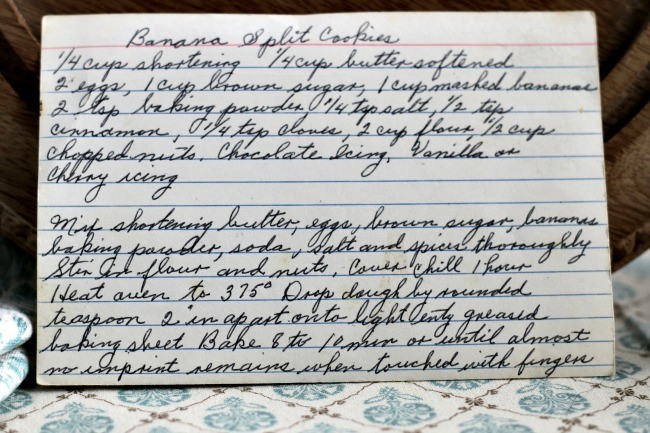 Banana Split Cookies
1/4 cup shortening 1/4 cup butter softened
2 eggs, 1 cup brown sugar, 1 cup mashed bananas
2 tsp baking powder, 1/4 tsp salt, 1/2 tsp
cinnamon, 1/4 tsp cloves, 2 cup flour, 1/2 cup
chopped nuts. Chocolate Icing, Vanilla or
cherry icing
Mix shortening butter, eggs, brown sugar, bananas
baking powder, soda, salt and spices thoroughly
Stir in flour and nuts. Cover chill 1 hour
Heat oven to 375° Drop dough by rounded
teaspoon 2" in apart onto light enty greased
baking sheet Bake 8 to 10 min or until almost
no imprint remains when touched with fingers